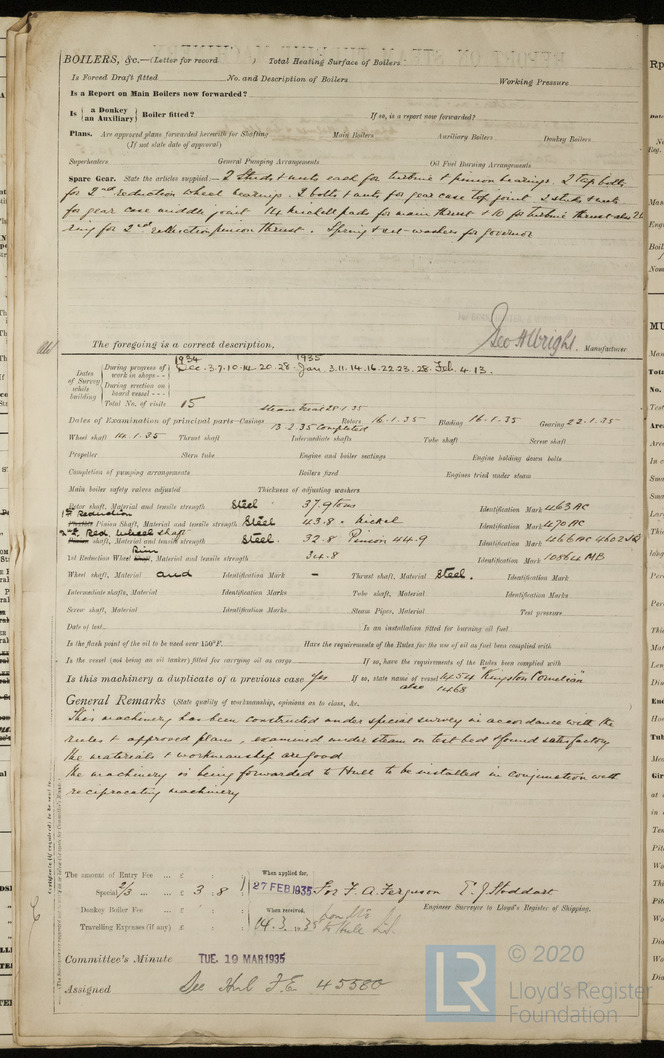 BOILERS, &c.—(Letter for record ) Total Heating Surface of Boilers
Is Forced Draft fitted No. and Description of Boilers Working Pressure
Is a Report on Main Boilers now forwarded?
Is { a Donkey / an Auxiliary } Boiler fitted? If so, is a report now forwarded?
Plans. Are approved plans forwarded herewith for Shafting Main Boilers Auxiliary Boilers Donkey Boilers
(If not state date of approval)
Superheaters General Pumping Arrangements Oil Fuel Burning Arrangements
Spare Gear. State the articles supplied:— 2 Studs & nuts each for turbine & pinion bearings. 2 Tap bolts
for 2nd reduction wheel bearings. 2 bolts & nuts for gear case top joint 2 studs & nuts
for gear case middle joint. 14 michell pads for main thrust & 10 for turbine thrust also
ring for 2nd reduction pinion thrust. Spring & set-washers for governor
The foregoing is a correct description,
Geo H Wright. Manufacturer
Dates of Survey while building
During progress of work in shops - - 1934 Dec. 3.7.10.14.20.28. 1935 Jan. 3.11.14.16.22.23.28. Feb. 4.13.
During erection on board vessel - - -
Total No. of visits 15
steam trial 28.1.35
Dates of Examination of principal parts—Casings 13.2.35 completed Rotors 16.1.35 Blading 16.1.35 Gearing 22.1.35
Wheel shaft 14.1.35 Thrust shaft Intermediate shafts Tube shaft Screw shaft
Propeller Stern tube Engine and boiler seatings Engine holding down bolts
Completion of pumping arrangements Boilers fixed Engines tried under steam
Main boiler safety valves adjusted Thickness of adjusting washers
Rotor shaft, Material and tensile strength Steel 37.9 tons Identification Mark 463 AC
1st Reduction Pinion Shaft, Material and tensile strength Steel 43.8 " Nickel Identification Mark 470 AC
2nd Red. Wheel shaft shaft, Material and tensile strength Steel. 32.8 Pinion 44.9 Identification Mark 466 AC
1st Reduction Wheel Rim, Material and tensile strength 34.8 Identification Mark 10564 MB
Wheel shaft, Material and Identification Mark - Thrust shaft, Material Steel. Identification Mark
Intermediate shafts, Material Identification Marks Tube shaft, Material Identification Marks
Screw shaft, Material Identification Marks Steam Pipes, Material Test pressure
Date of test Is an installation fitted for burning oil fuel
Is the flash point of the oil to be used over 150°F. Have the requirements of the Rules for the use of oil as fuel been complied with
Is the vessel (not being an oil tanker) fitted for carrying oil as cargo If so, have the requirements of the Rules been complied with
Is this machinery a duplicate of a previous case Yes If so, state name of vessel 1454 "Kingston Cornelian"
also 1468
General Remarks (State quality of workmanship, opinions as to class, &c.
This machinery has been constructed under special survey in accordance with the
rules & approved plans, examined under steam on test bed & found satisfactory
the materials & workmanship are good
The machinery is being forwarded to Hull to be installed in conjunction with
reciprocating machinery
The amount of Entry Fee ... £ : : When applied for,
Special 2/3 ... £ 3 . 8 : 27 FEB 1935 For F. A. Ferguson E. J. Stoddart
Donkey Boiler Fee ... £ : : When received, Engineer Surveyor to Lloyd's Register of Shipping.
Travelling Expenses (if any) £ : : 14.3.1935
Committee's Minute TUE. 19 MAR 1935
Assigned See Hul F.E. 45580
© 2020
LR Lloyd's Register
Foundation